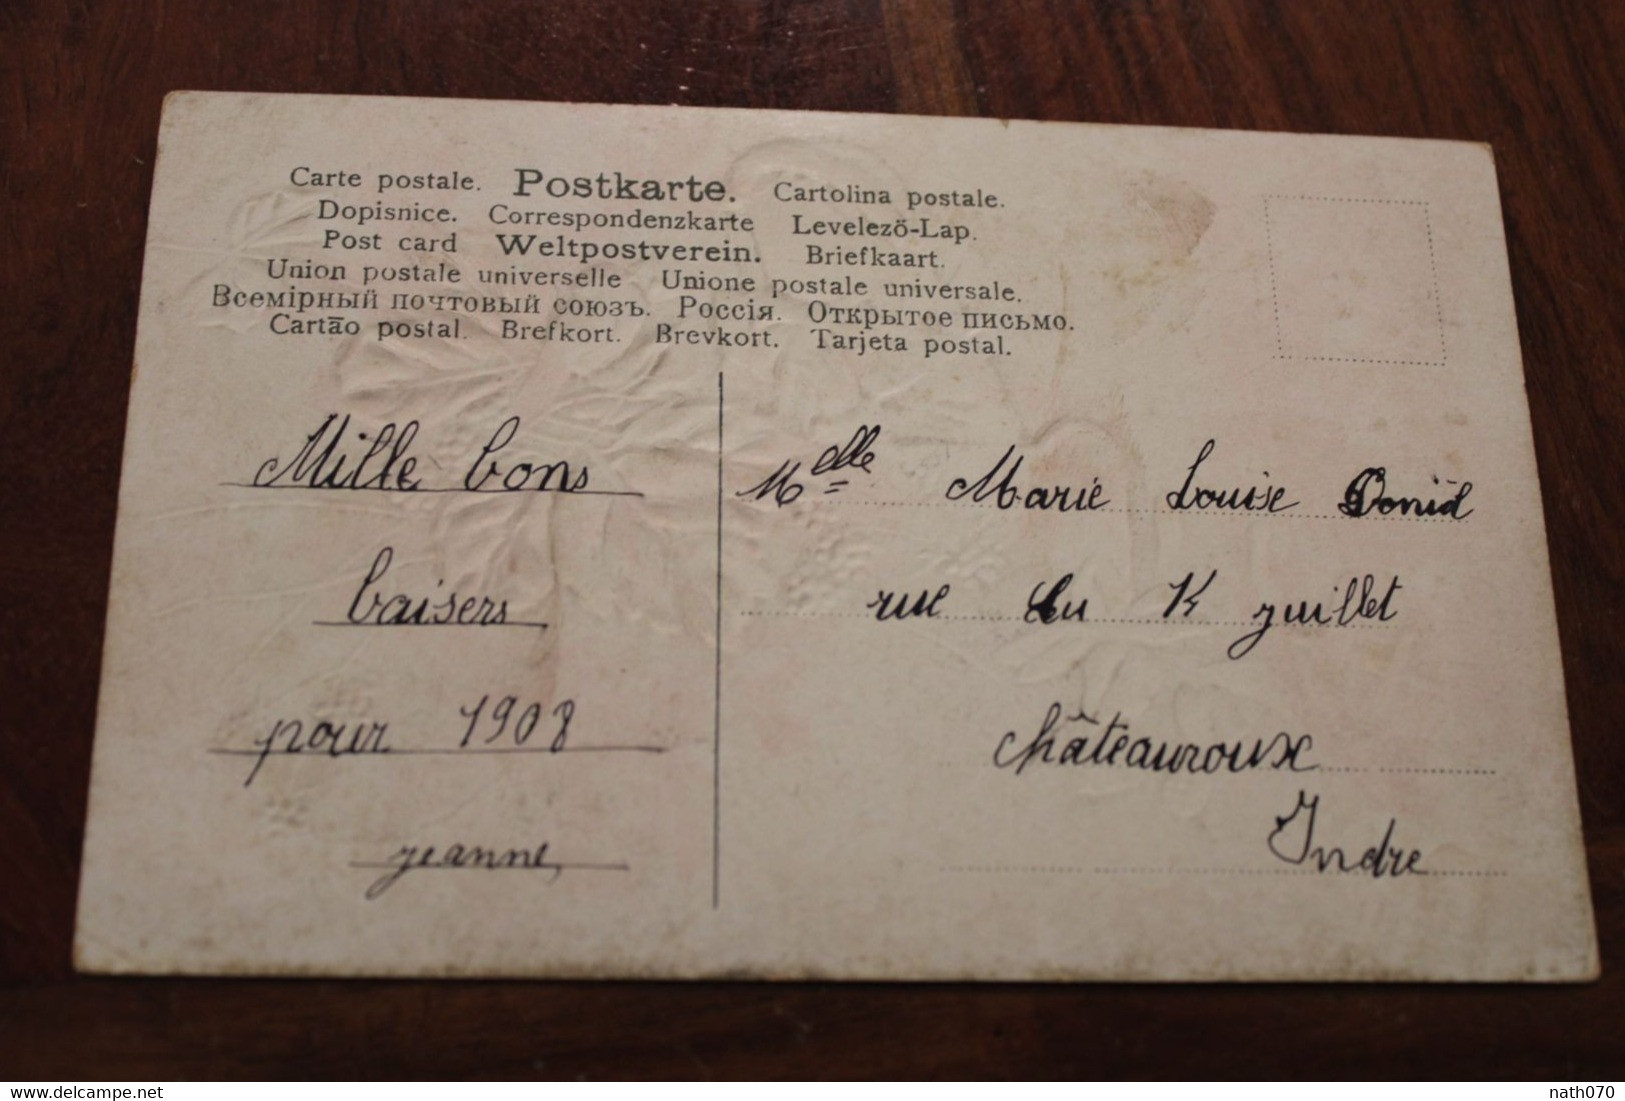 Carte postale. Postkarte. Cartolina postale.
Dopisnice. Correspondenzkarte Levelező-Lap.
Post card Weltpostverein. Briefkaart.
Union postale universelle Unione postale universale.
Всемірный почтовый союзъ. Россія. Открытое письмо.
Cartão postal. Brefkort. Brevkort. Tarjeta postal.
Mille bons
baisers
pour 1908
jeanne,
Melle Marie Louise
rue du juillet
Châteauroux
Indre
www.delcampe.net
nath070